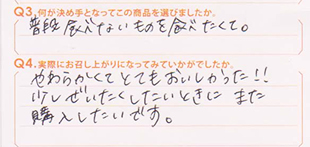 Q3.何が決め手となってこの商品を選びましたか。
普段食べないものを食べたくて。
Q4.実際にお召し上がりになってみていかがでしたか。
やわらかくてとてもおいしかった!!
少しぜいたくしたいときに また
購入したいです。